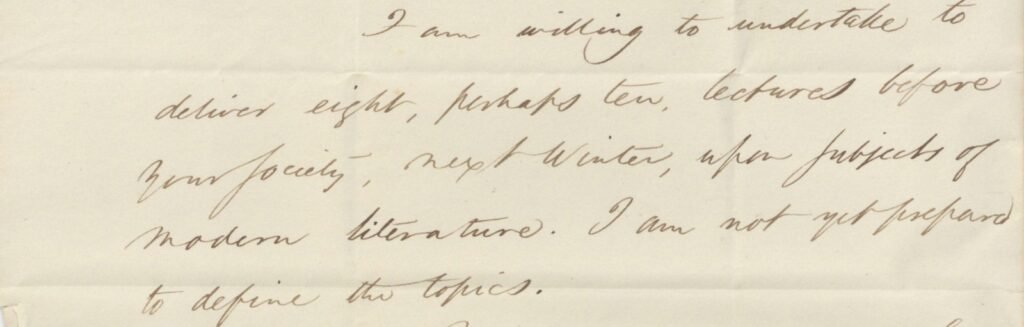 I am willing to undertake to
deliver eight, perhaps ten, lectures before
your Society, next Winter, upon subjects of
modern literature. I am not yet prepared
to define the topics.